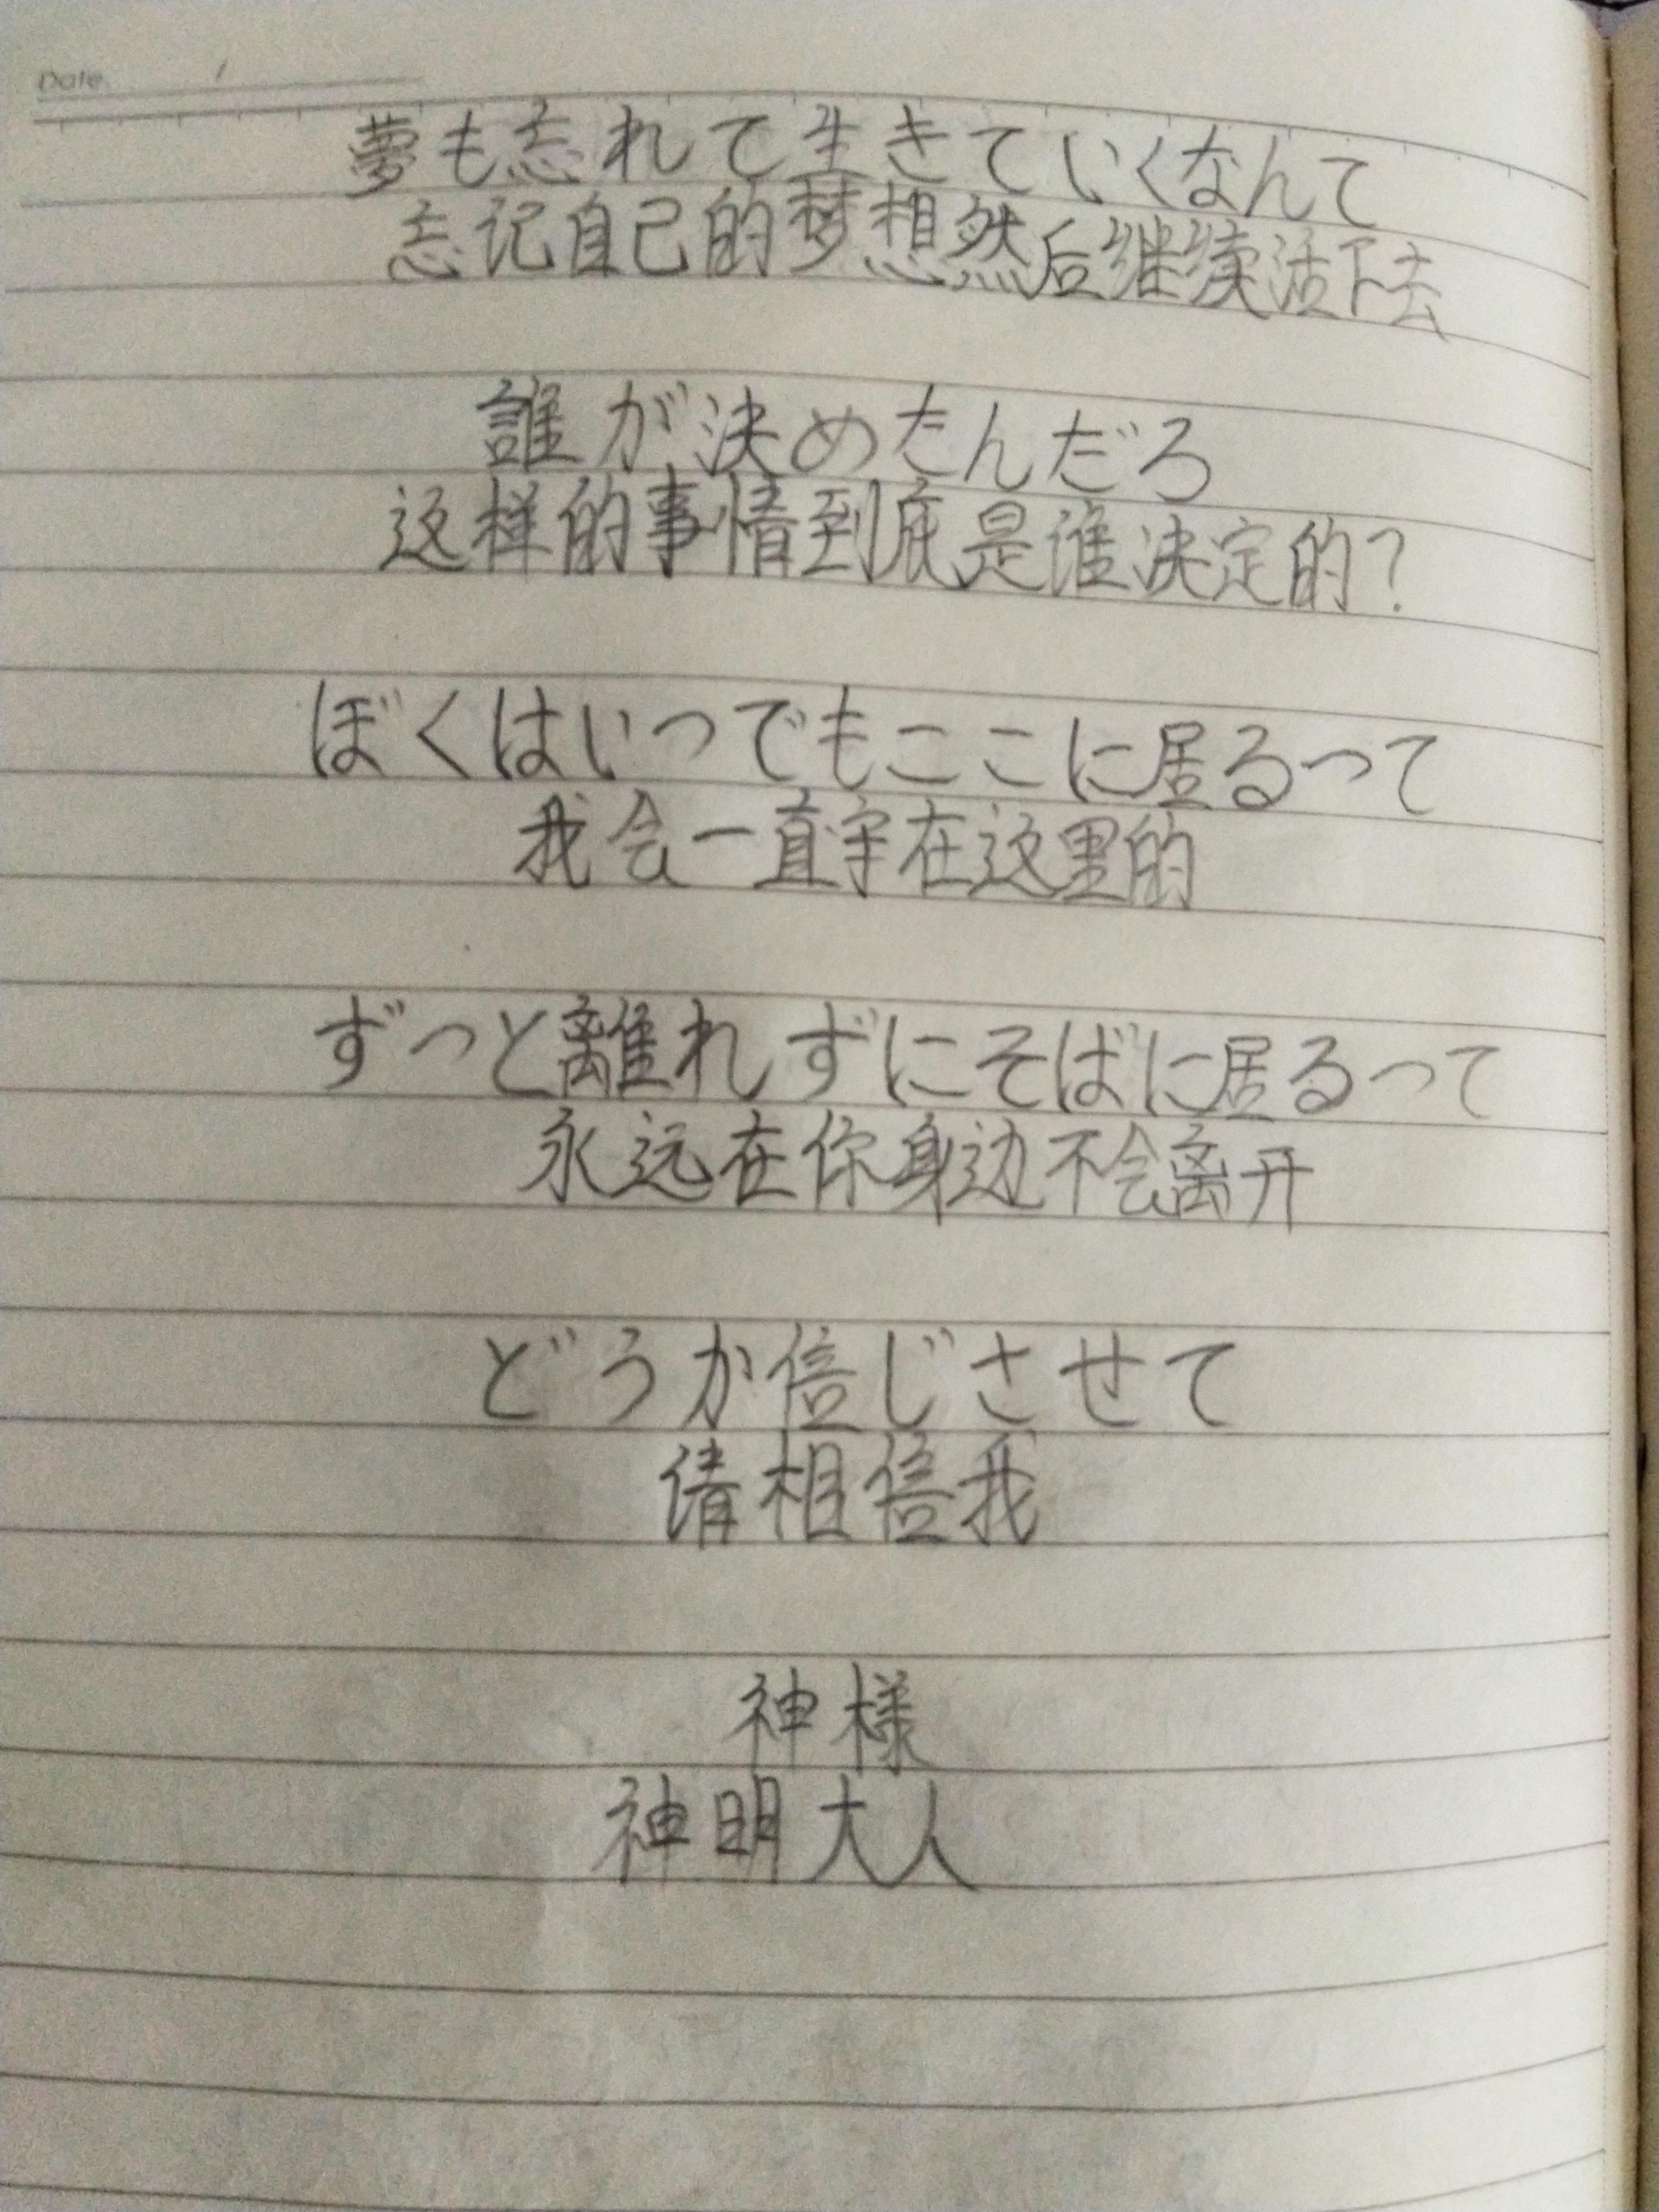 Date /
夢も忘れて生きていくなんて
忘记自己的梦想然后继续活下去
誰が決めたんだろ
这样的事情到底是谁决定的?
ぼくはいつでもここに居るって
我会一直守在这里的
ずっと離れずにそばに居るって
永远在你身边不会离开
どうか信じさせて
请相信我
神様
神明大人